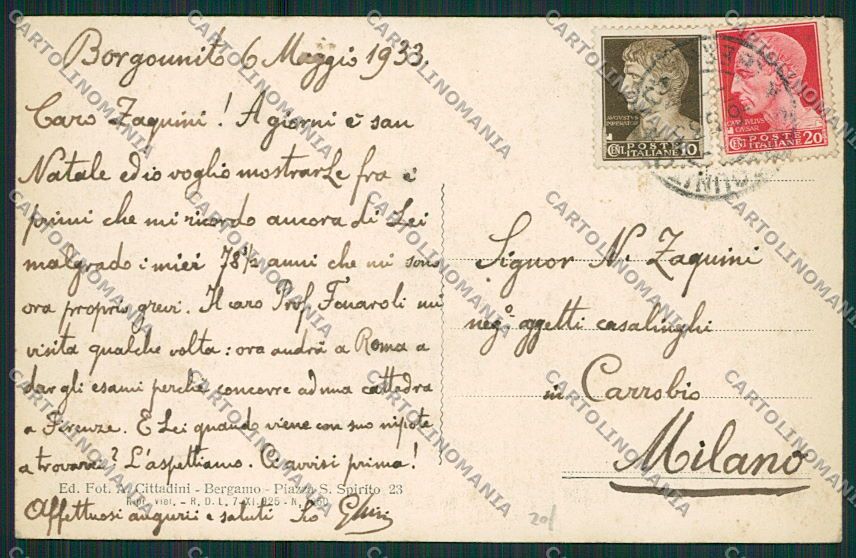 Borgounito 6 Maggio 1933.
Caro Zaquini! A giorni è san
Natale ed io voglio mostrarLe fra i
primi che mi ricordo ancora di Lei
malgrado i miei 78½ anni che mi sono
ora proprio grevi. Il caro Prof. Fonaroli mi
visita qualche volta: ora andrà a Roma a
dar gli esami perchè concorre ad una cattedra
a Firenze. E Lei quando viene con suo nipote
a trovarci? L'aspettiamo. Ci avvisi prima!
Ed. Fot. A. Cittadini - Bergamo - Piazza S. Spirito 23
Rip. viet. - R. D. L. 7-XI-925 - N.
Affettuosi augurii e saluti
Signor N. Zaquini
neg.e oggetti casalinghi
in Carrobio
Milano
AVGVSTVS
IMPERATOR
CENT. POSTE ITALIANE 10
CAIVS IVLIVS
CAESAR
CENT. POSTE ITALIANE 20
20/
CARTOLINOMANIA